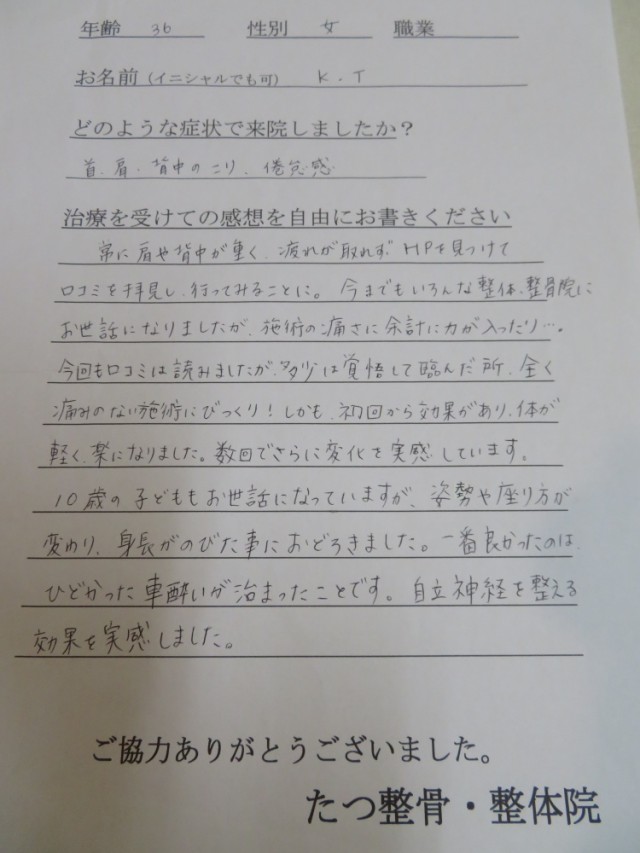 年齢 36 性別 女 職業
お名前(イニシャルでも可) K.T
どのような症状で来院しましたか?
首、肩、背中のこり、倦怠感
治療を受けての感想を自由にお書きください
常に肩や背中が重く、疲れが取れずHPを見つけて
口コミを拝見し、行ってみることに。今までもいろんな整体、整骨院に
お世話になりましたが、施術の痛さに余計に力が入ったり…。
今回も口コミは読みましたが、多少は覚悟して臨んだ所、全く
痛みのない施術にびっくり!しかも、初回から効果があり、体が
軽く、楽になりました。数回でさらに変化を実感しています。
10歳の子どももお世話になっていますが、姿勢や座り方が
変わり、身長がのびた事におどろきました。一番良かったのは、
ひどかった車酔いが治まったことです。自立神経を整える
効果を実感しました。
ご協力ありがとうございました。
たつ整骨・整体院